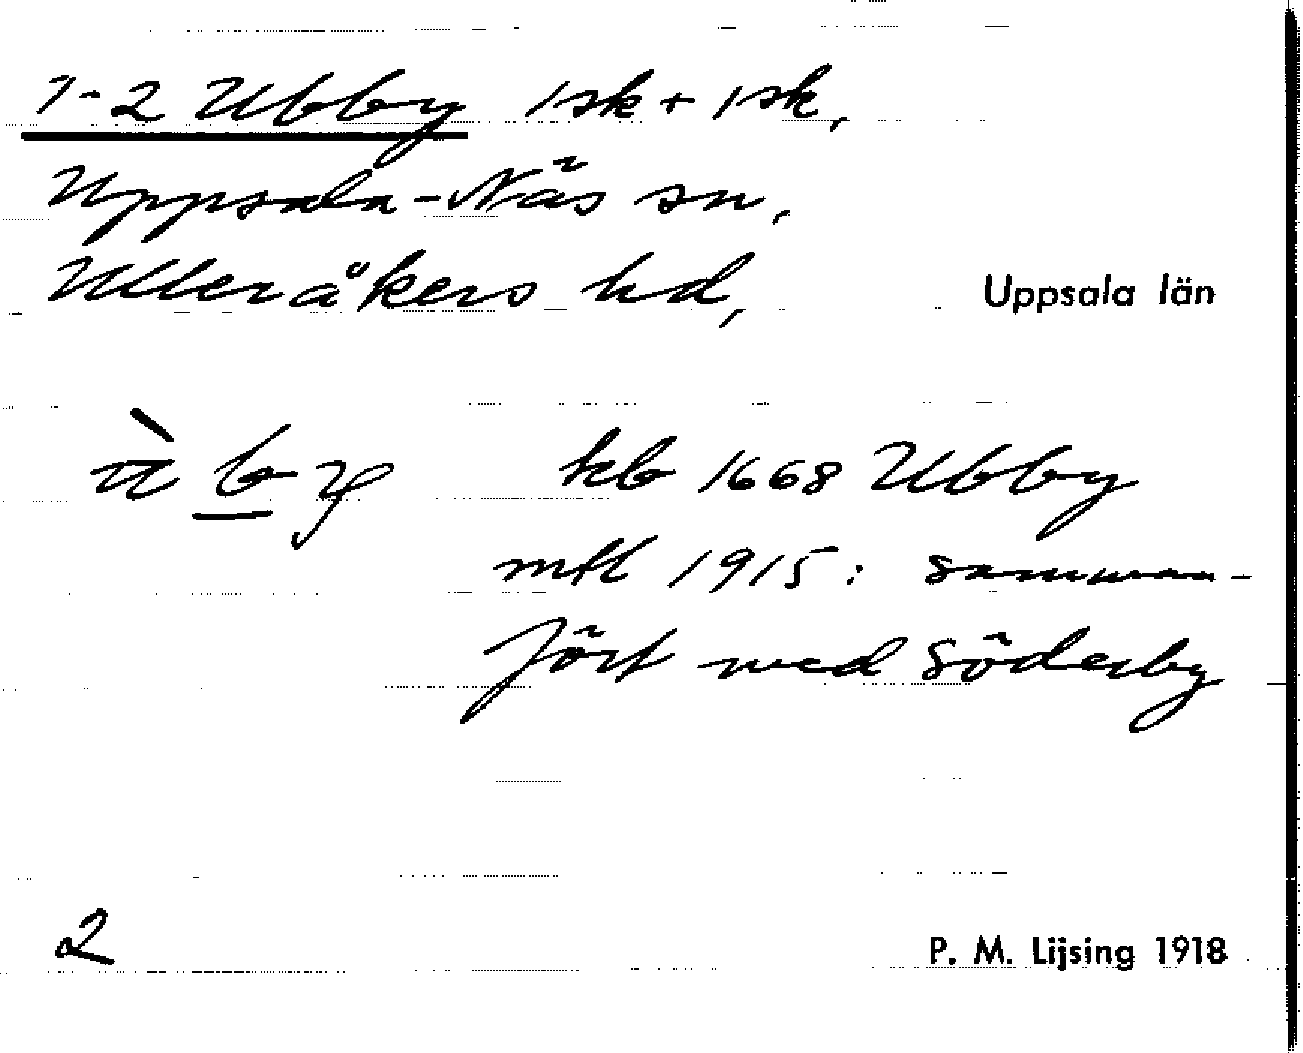 1-2 Ubby 1 sk + 1 sk,
Uppsala-Näs sn,
Ulleråkers hd, Uppsala län
ὰ b y kb 1668 Ubby
mtl 1915: samman-
fört med Söderby
2 P. M. Lijsing 1918